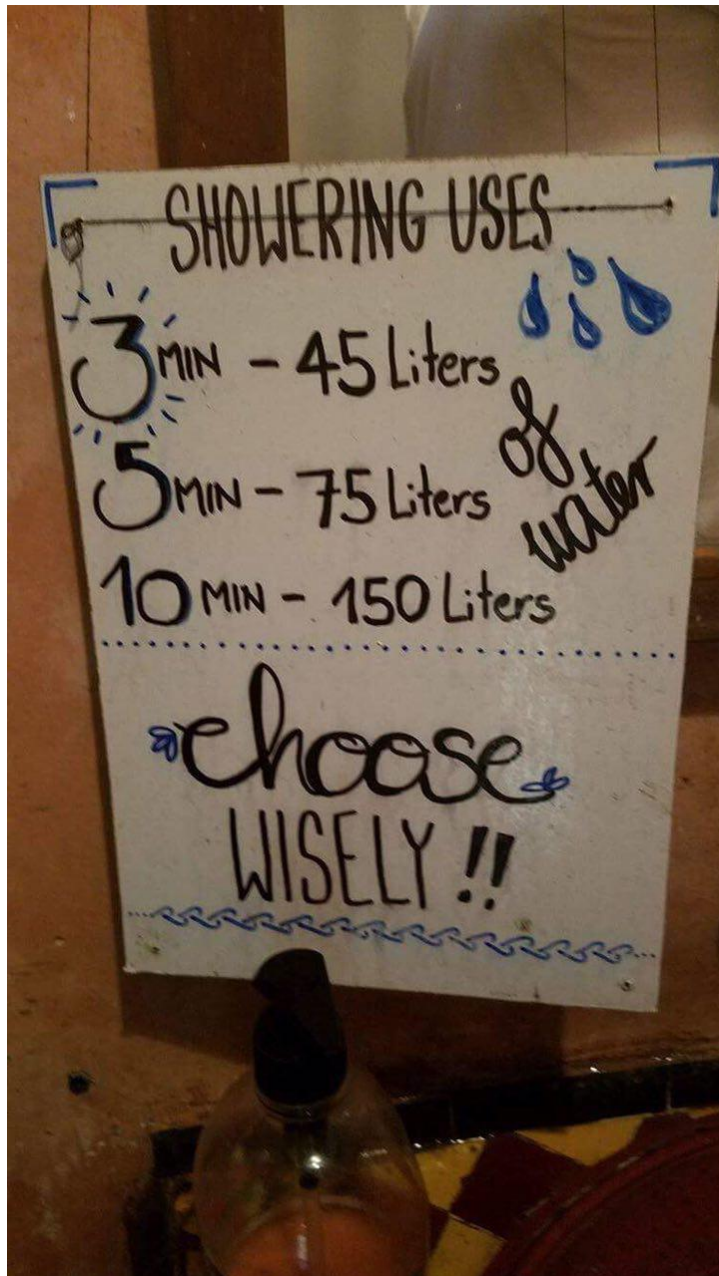 SHOWERING USES
3 MIN - 45 Liters
5 MIN - 75 Liters
10 MIN - 150 Liters
of
water
choose
WISELY !!